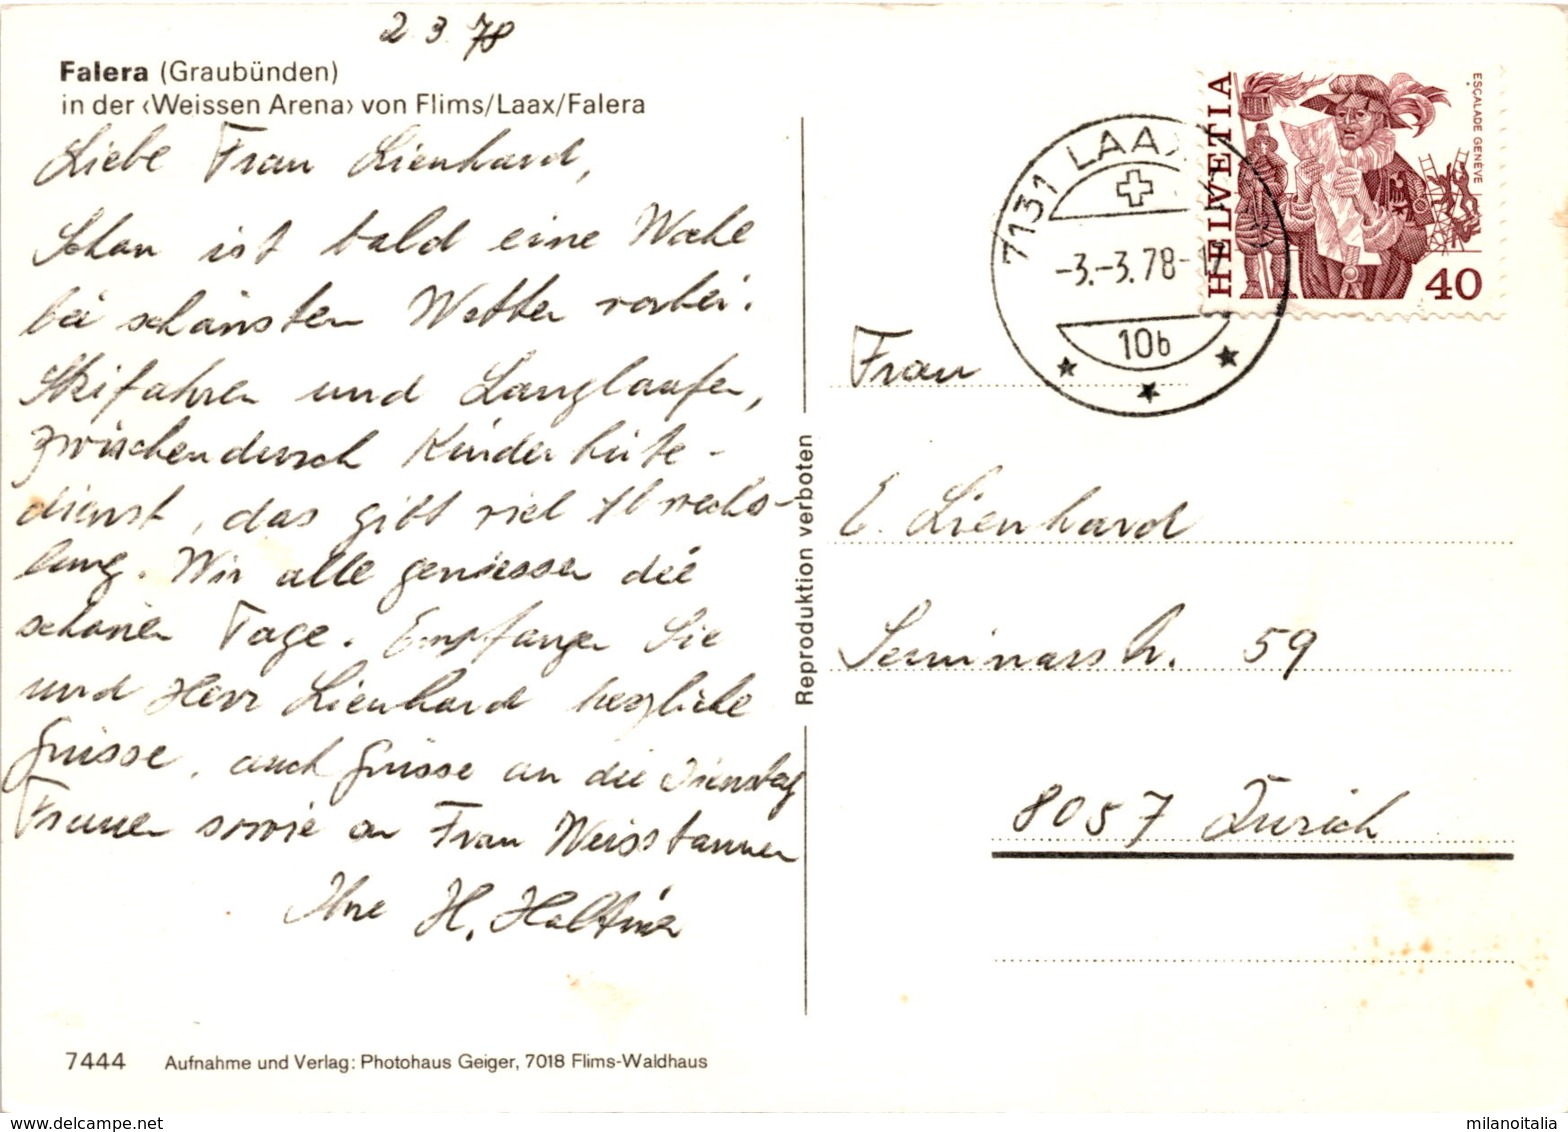 2.3.78
Falera (Graubünden)
in der ‹Weissen Arena› von Flims/Laax/Falera
Liebe Frau Lienhard,
Schon ist bald eine Woche
bei schönsten Wetter vorbei.
Skifahren und Langlaufen,
zwischendurch Kinderhüte-
dienst, das gibt viel Abwechs-
lung. Wir alle geniessen die
schönen Tage. Empfangen Sie
und Herr Lienhard herzliche
Grüsse, auch Grüsse an die Dienstag
Frauen sowie an Frau Weisstanner
Ihre H.
7444 Aufnahme und Verlag: Photohaus Geiger, 7018 Flims-Waldhaus
Reproduktion verboten
7131 LAAX
-3.-3.78-17
10b
HELVETIA
ESCALADE GENÈVE
40
Frau
E. Lienhard
Seminarstr. 59
8057 Zürich
milanoitalia